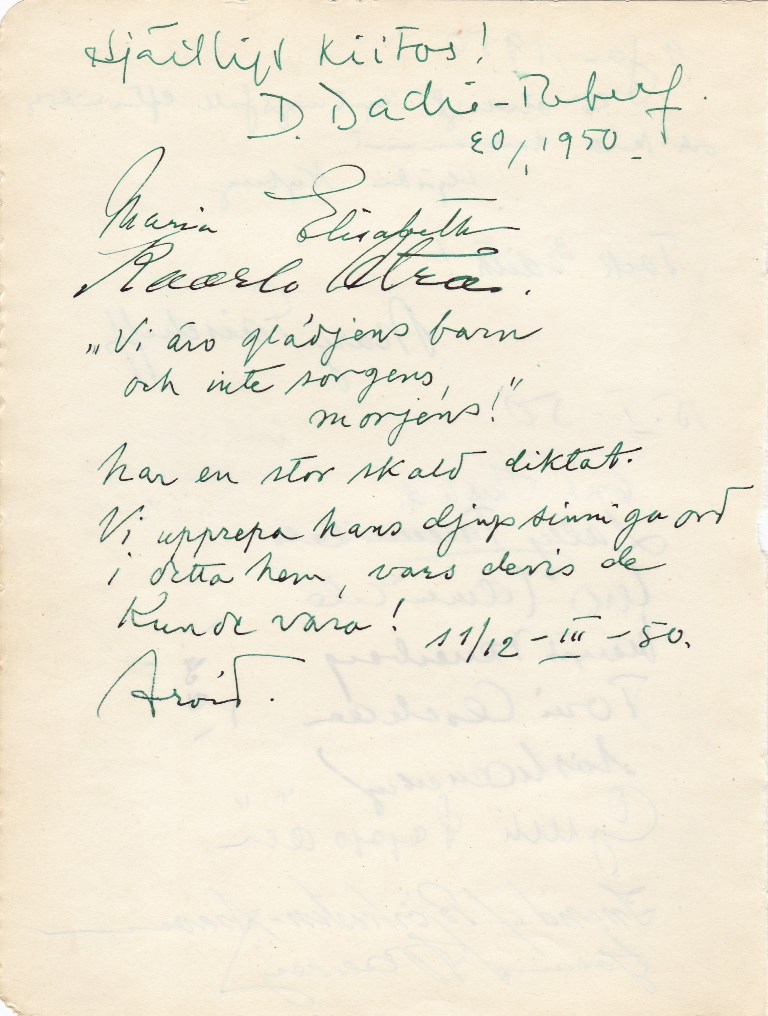 Hjärtligt Kiitos!
D.
30/1 1950.
Maria Elisabeth
Kaarlo
"Vi äro glädjens barn
och inte sorgens,
morjens!"
har en stor skald diktat.
Vi upprepa hans djupsinniga ord
i detta hem, vars devis de
kunde vara!
11/12-III-50.
Arvid.